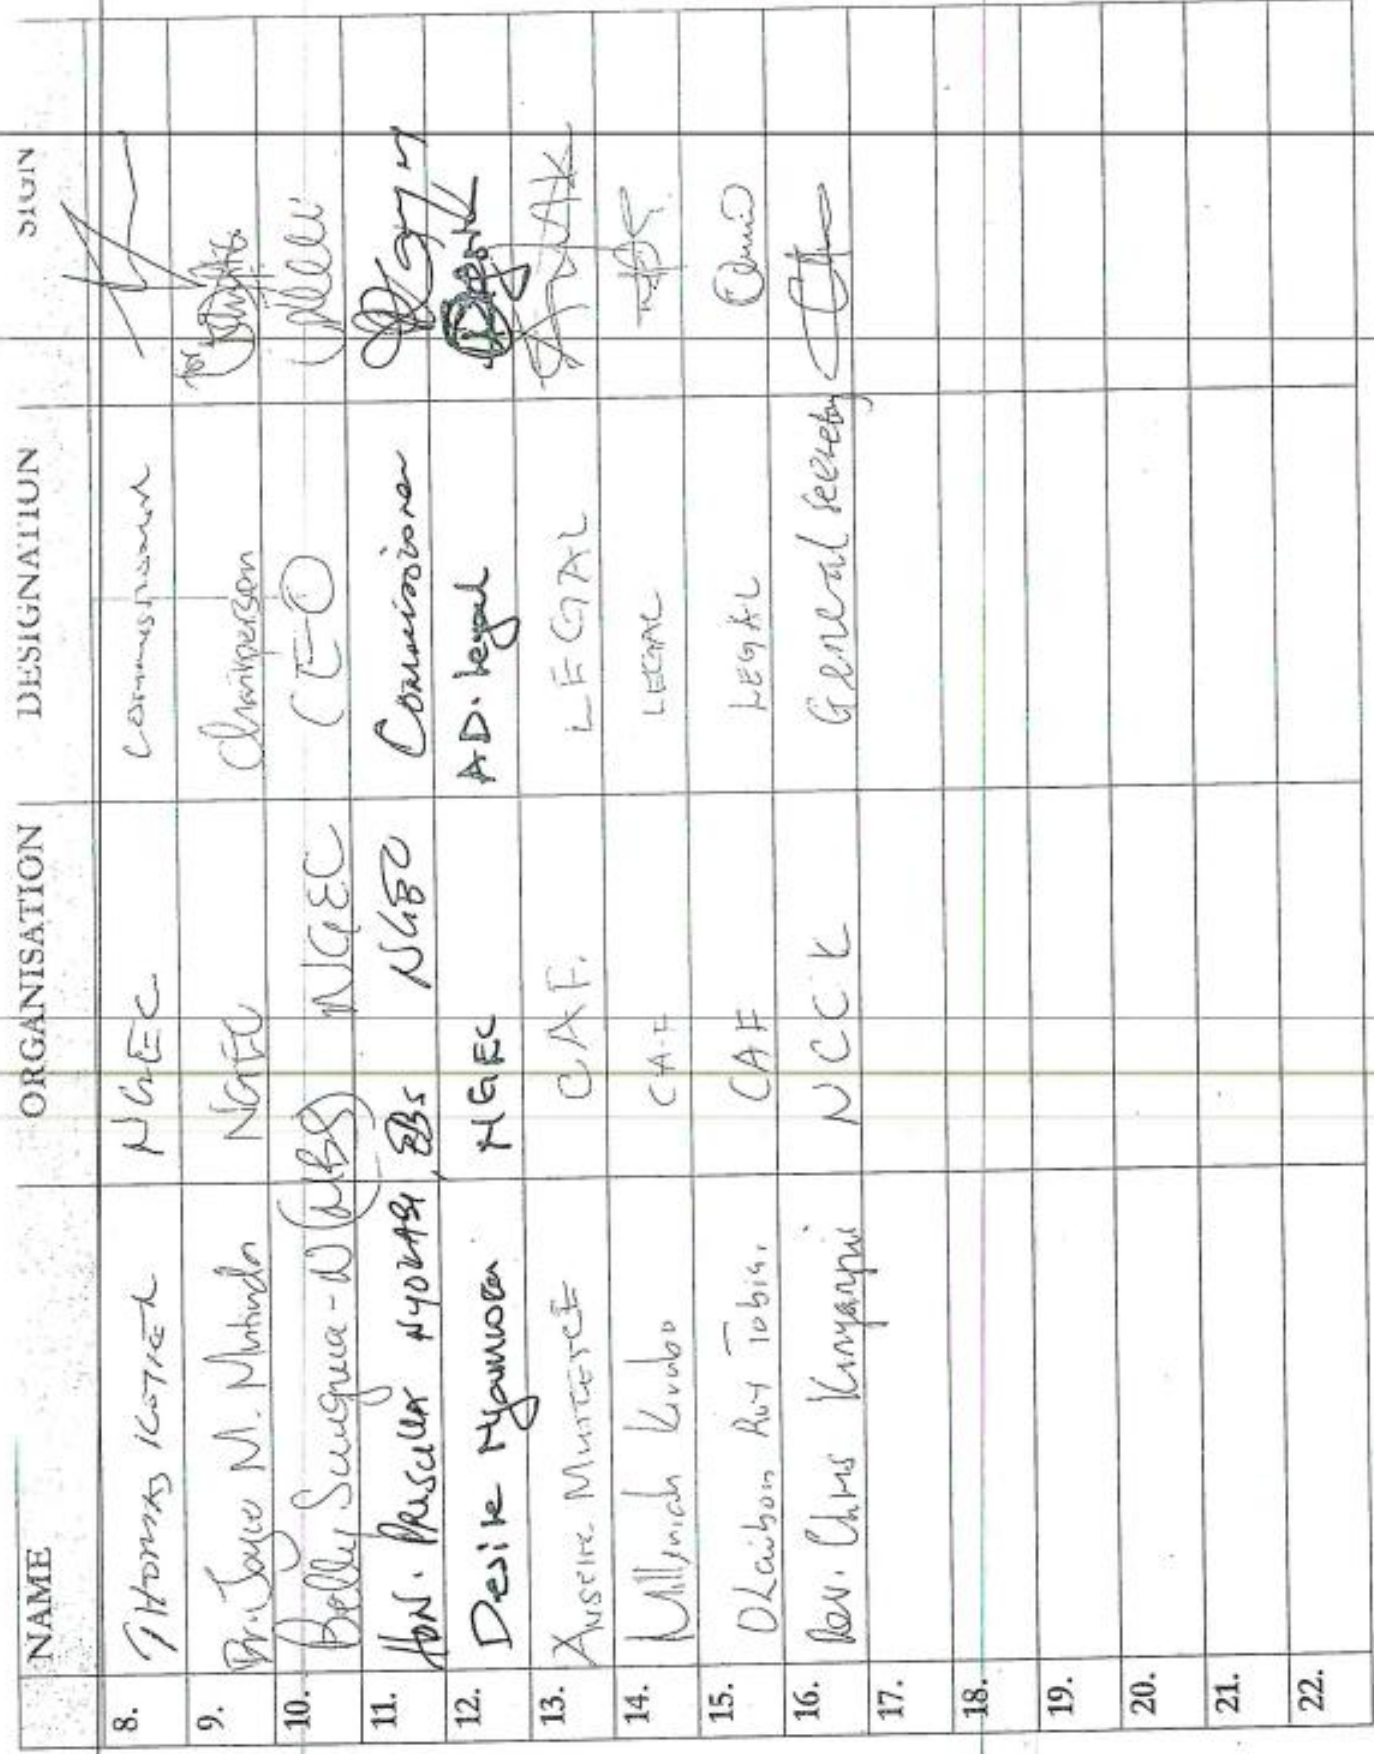 NAME ORGANISATION DESIGNATION SIGN
8. THOMAS KOTIET NGEC Commissioner
9. Dr. Joyce M. Mutinda NGEC Chairperson for
10. Betty Sungura-N (MBS) NGEC CEO
11. HON. PRISCILLA NYOKABI, EBS NGEC Commissioner
12. Desire Nyamwea NGEC AD. Legal
13. C.A.F. LEGAL
14. Millicent CAF LEGAL
15. Tobia. CAF LEGAL
16. Rev. Chris Kinyanjui NCCK General Secretary
17.
18.
19.
20.
21.
22.